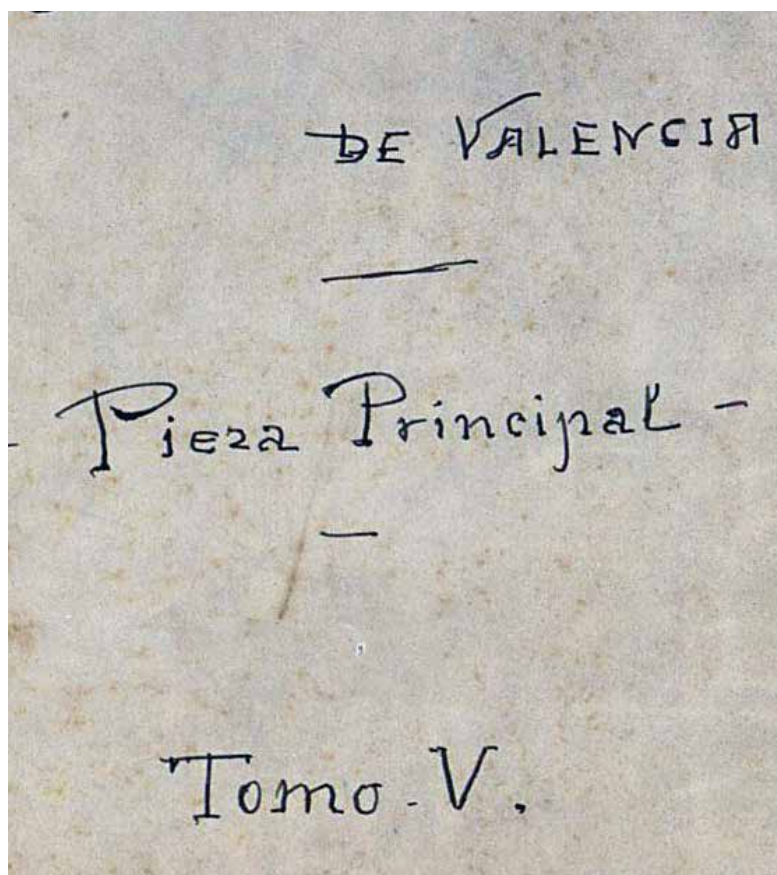 DE VALENCIA
- Pieza Principal -
Tomo. V.